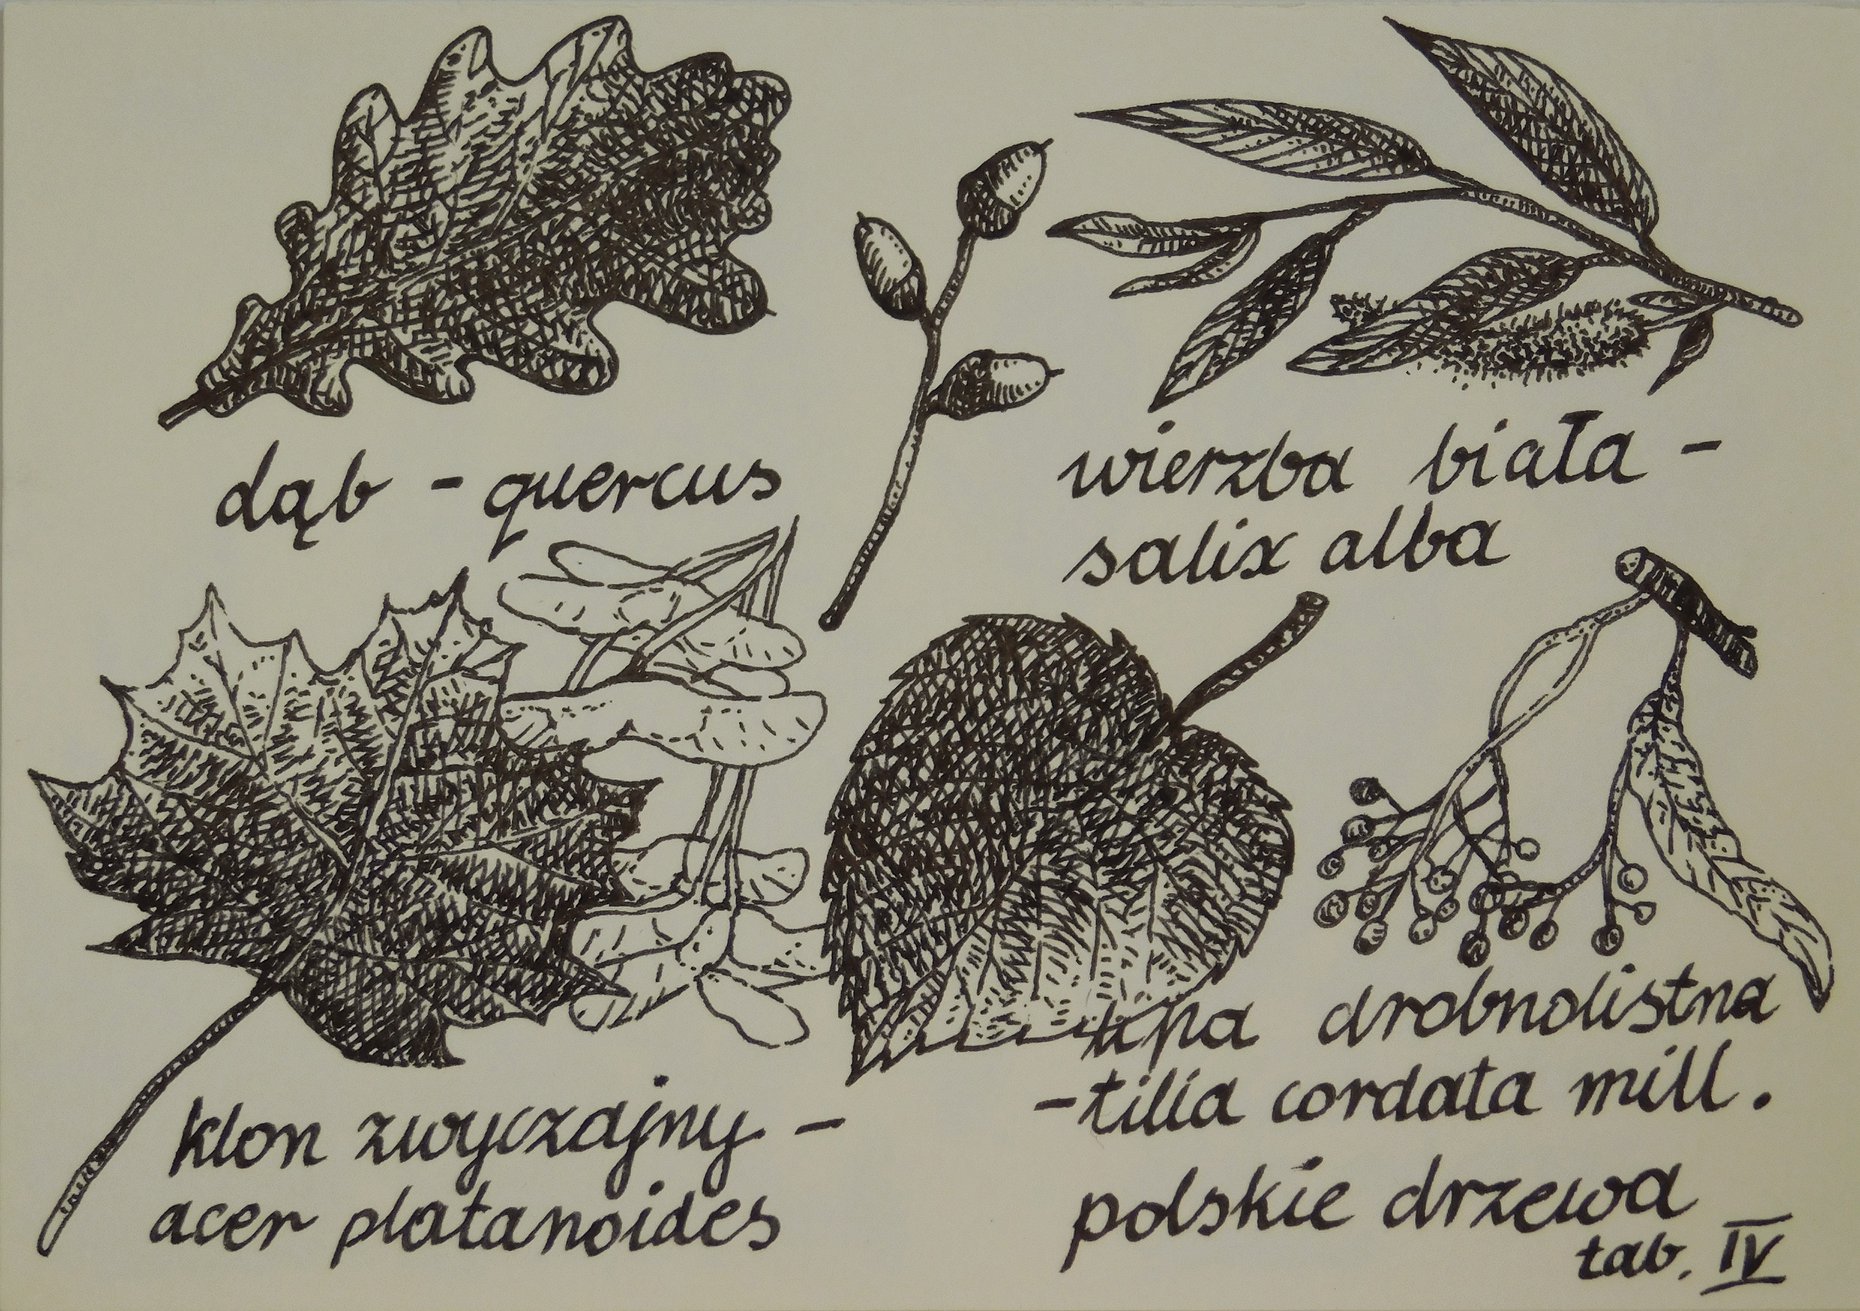 dąb - quercus
wierzba biała -
salix alba
klon zwyczajny -
acer platanoides
lipa drobnolistna
- tilia cordata mill.
polskie drzewa
tab. IV